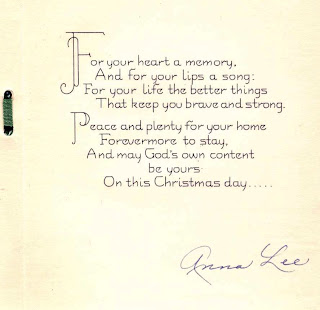 For your heart a memory,
And for your lips a song:
For your life the better things
That keep you brave and strong.
Peace and plenty for your home
Forevermore to stay,
And may God's own content
be yours
On this Christmas day.....
Anna Lee